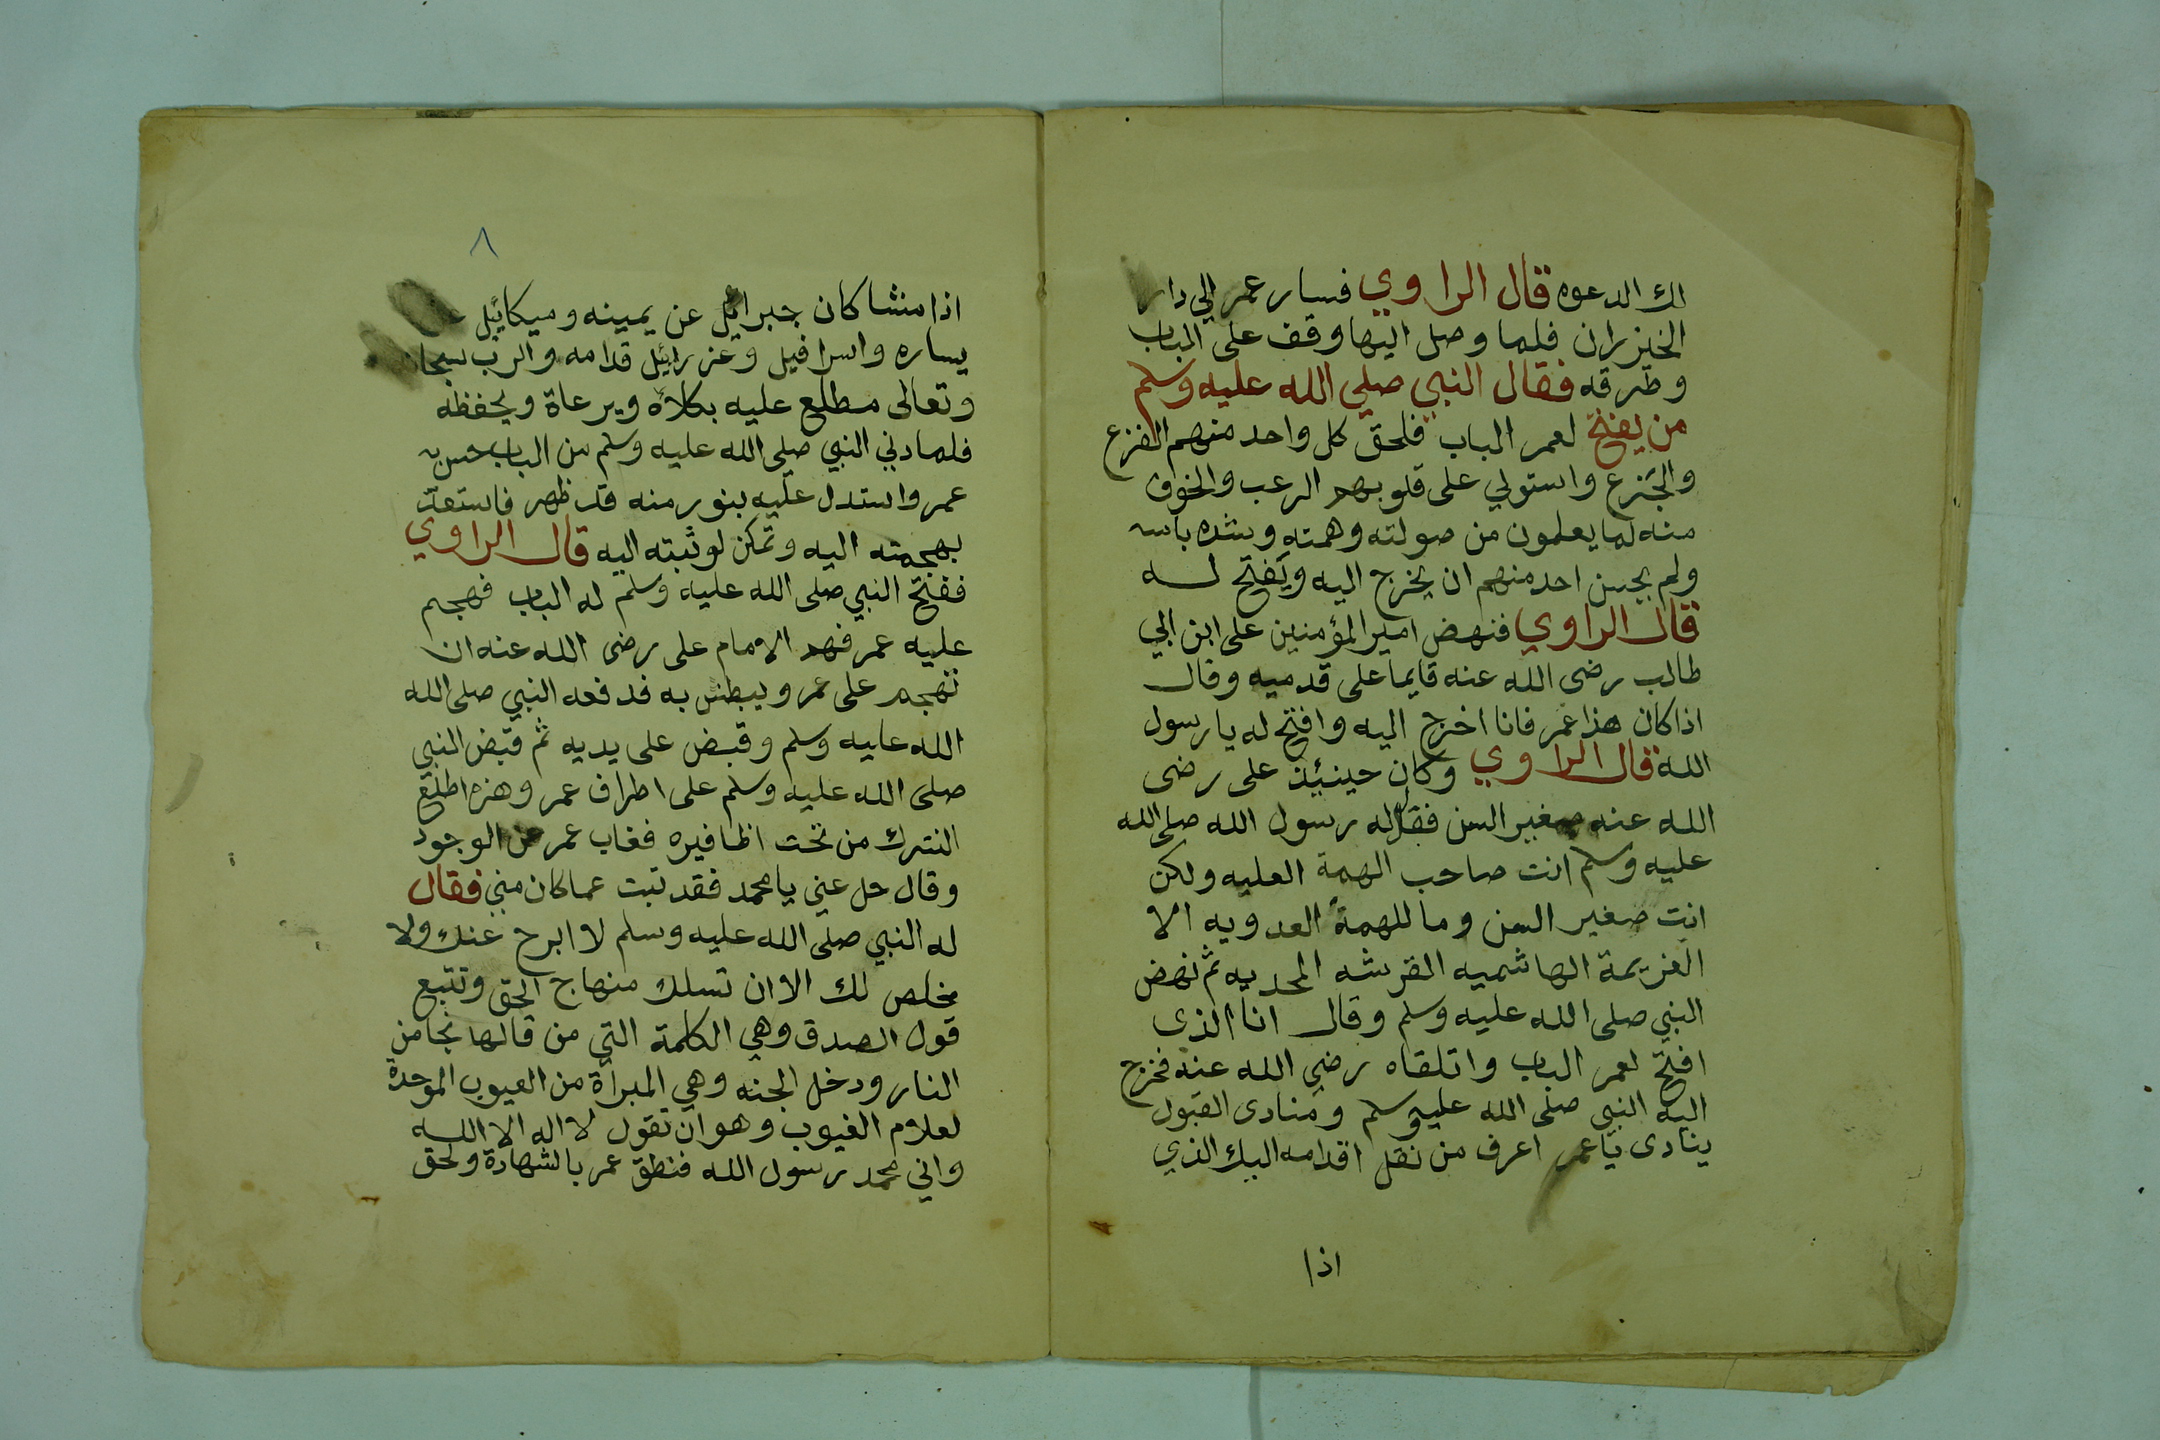 لك الدعوه قال الراوي فسار عمر الي دار
الخيزران فلما وصل اليها وقف على الباب
وطرقه فقال النبي صلي الله عليه وسلم
من يفتح لعمر الباب فلحق كل واحد منهم الفزع
والجزع واستولي على قلوبهم الرعب والخوف
منه لما يعلمون من صولته وهمته وشده باسه
ولم يجسن احد منهم ان يخرج اليه ويفتح له
قال الراوي فنهض امير المؤمنين على ابن ابي
طالب رضى الله عنه قايما على قدميه وقال
اذا كان هذا عمر فانا اخرج اليه وافتح له يا رسول
الله قال الراوي وكان حينيئذ على رضى
الله عنه صغير السن فقال له رسول الله صلى الله
عليه وسلم انت صاحب الهمة العليه ولكن
انت صغير السن وما للهمة العدويه الا
العزيمة الهاشميه القرشه المحمديه ثم نهض
النبي صلى الله عليه وسلم وقال انا الذى
افتح لعمر الباب واتلقاه رضي الله عنه فخرج
اليه النبي صلى الله عليه وسلم ومنادى القبول
ينادى يا عمر اعرف من نقل اقدامه اليك الذي
اذا
٨
اذا مشا كان جبرائيل عن يمينه وميكائيل
يساره واسرافيل وعزرائيل قدامه والرب سبحا
وتعالى مطلع عليه بكلاه ويرعاة ويحفظه
فلما دني النبي صلى الله عليه وسلم من الباب حس به
عمر واستدل عليه بنور منه قد ظهر فاستعد
بهجمته اليه وتمكن لوثبته اليه قال الراوي
ففتح النبي صلى الله عليه وسلم له الباب فهجم
عليه عمر فهم الامام على رضى الله عنه ان
تهجم على عمر ويبطش به فدفعه النبي صلى الله
الله عليه وسلم وقبض على يديه ثم قبض النبي
صلى الله عليه وسلم على اطراف عمر وهزه اطلع
الشرك من تحت اظافيره فغاب عمر عن الوجود
وقال حل عني يا محمد فقد تبت عما كان مني فقال
له النبي صلى الله عليه وسلم لا ابرح عنك ولا
مخلص لك الا ان تسلك منهاج الحق وتتبع
قول الصدق وهي الكلمة التي من قالها نجا من
النار ودخل الجنه وهي المبرأة من العيوب الموحدة
لعلام الغيوب وهو ان تقول لا اله الا الله
واني محمد رسول الله فنطق عمر بالشهادة ولحق